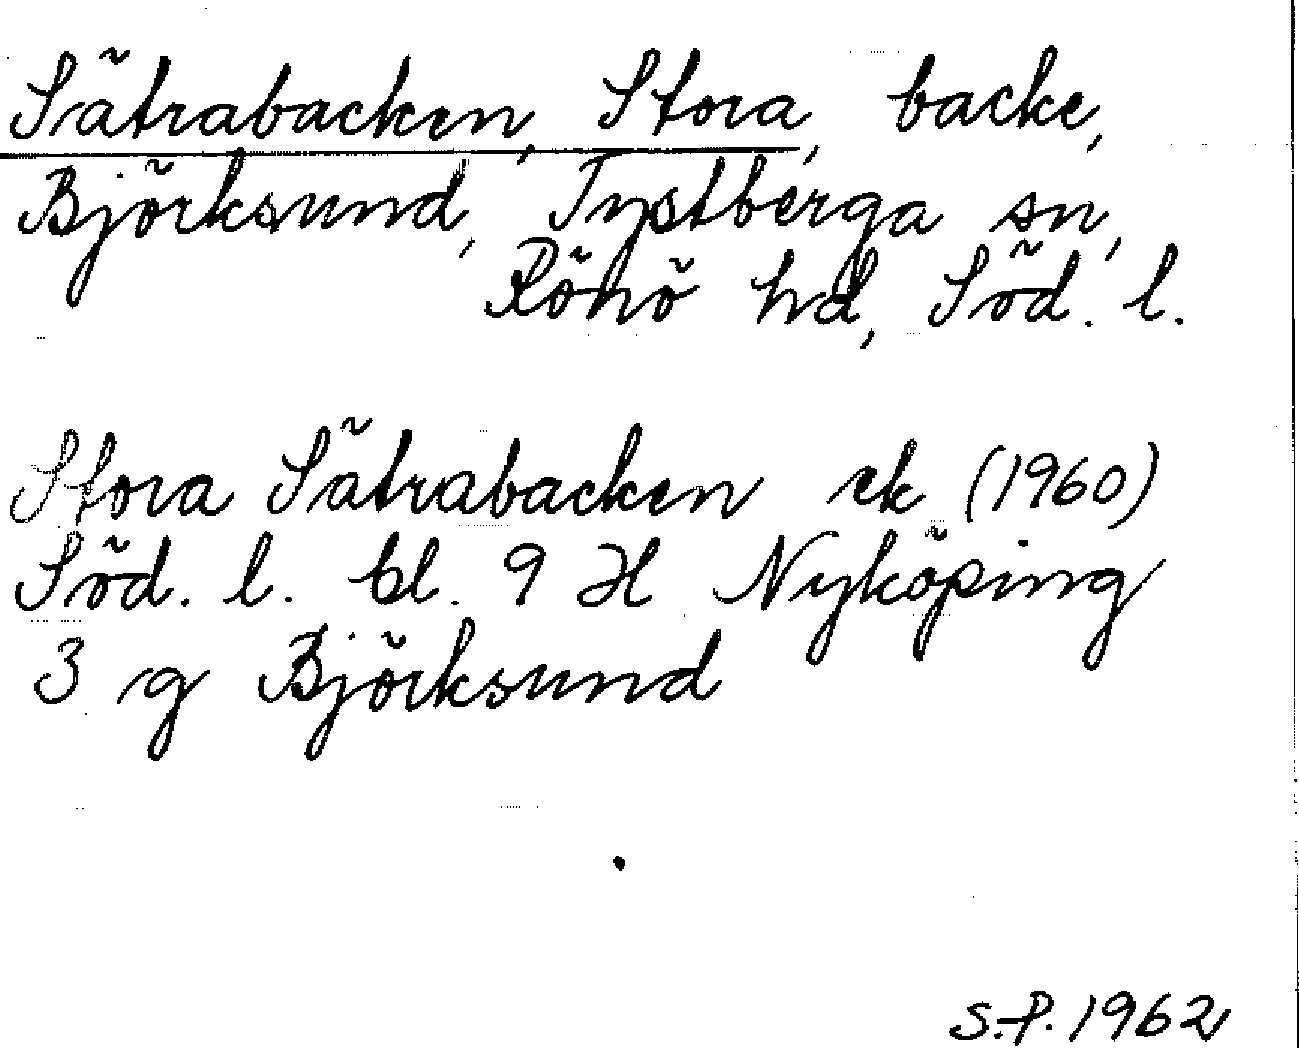 Sätrabacken, Stora, backe,
Björksund, Tystberga sn,
Rönö hd, Söd. l.
Stora Sätrabacken ek (1960)
Söd. l. bl. 9 H Nyköping
3 g Björksund
S.P. 1962